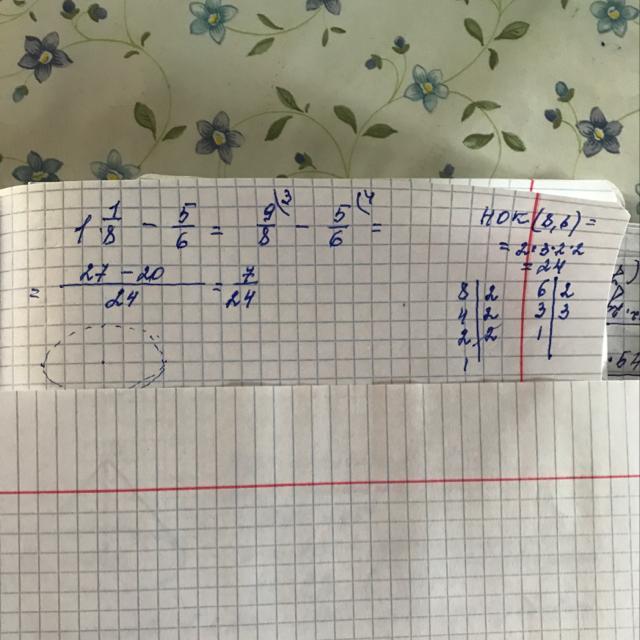 1 1/8 - 5/6 = 9/8 (3 - 5/6 (4 =
= 27 - 20/24 = 7/24
НОК(8,6) =
= 2·3·2·2
= 24
8 | 2
4 | 2
2 | 2
1
6 | 2
3 | 3
1 |